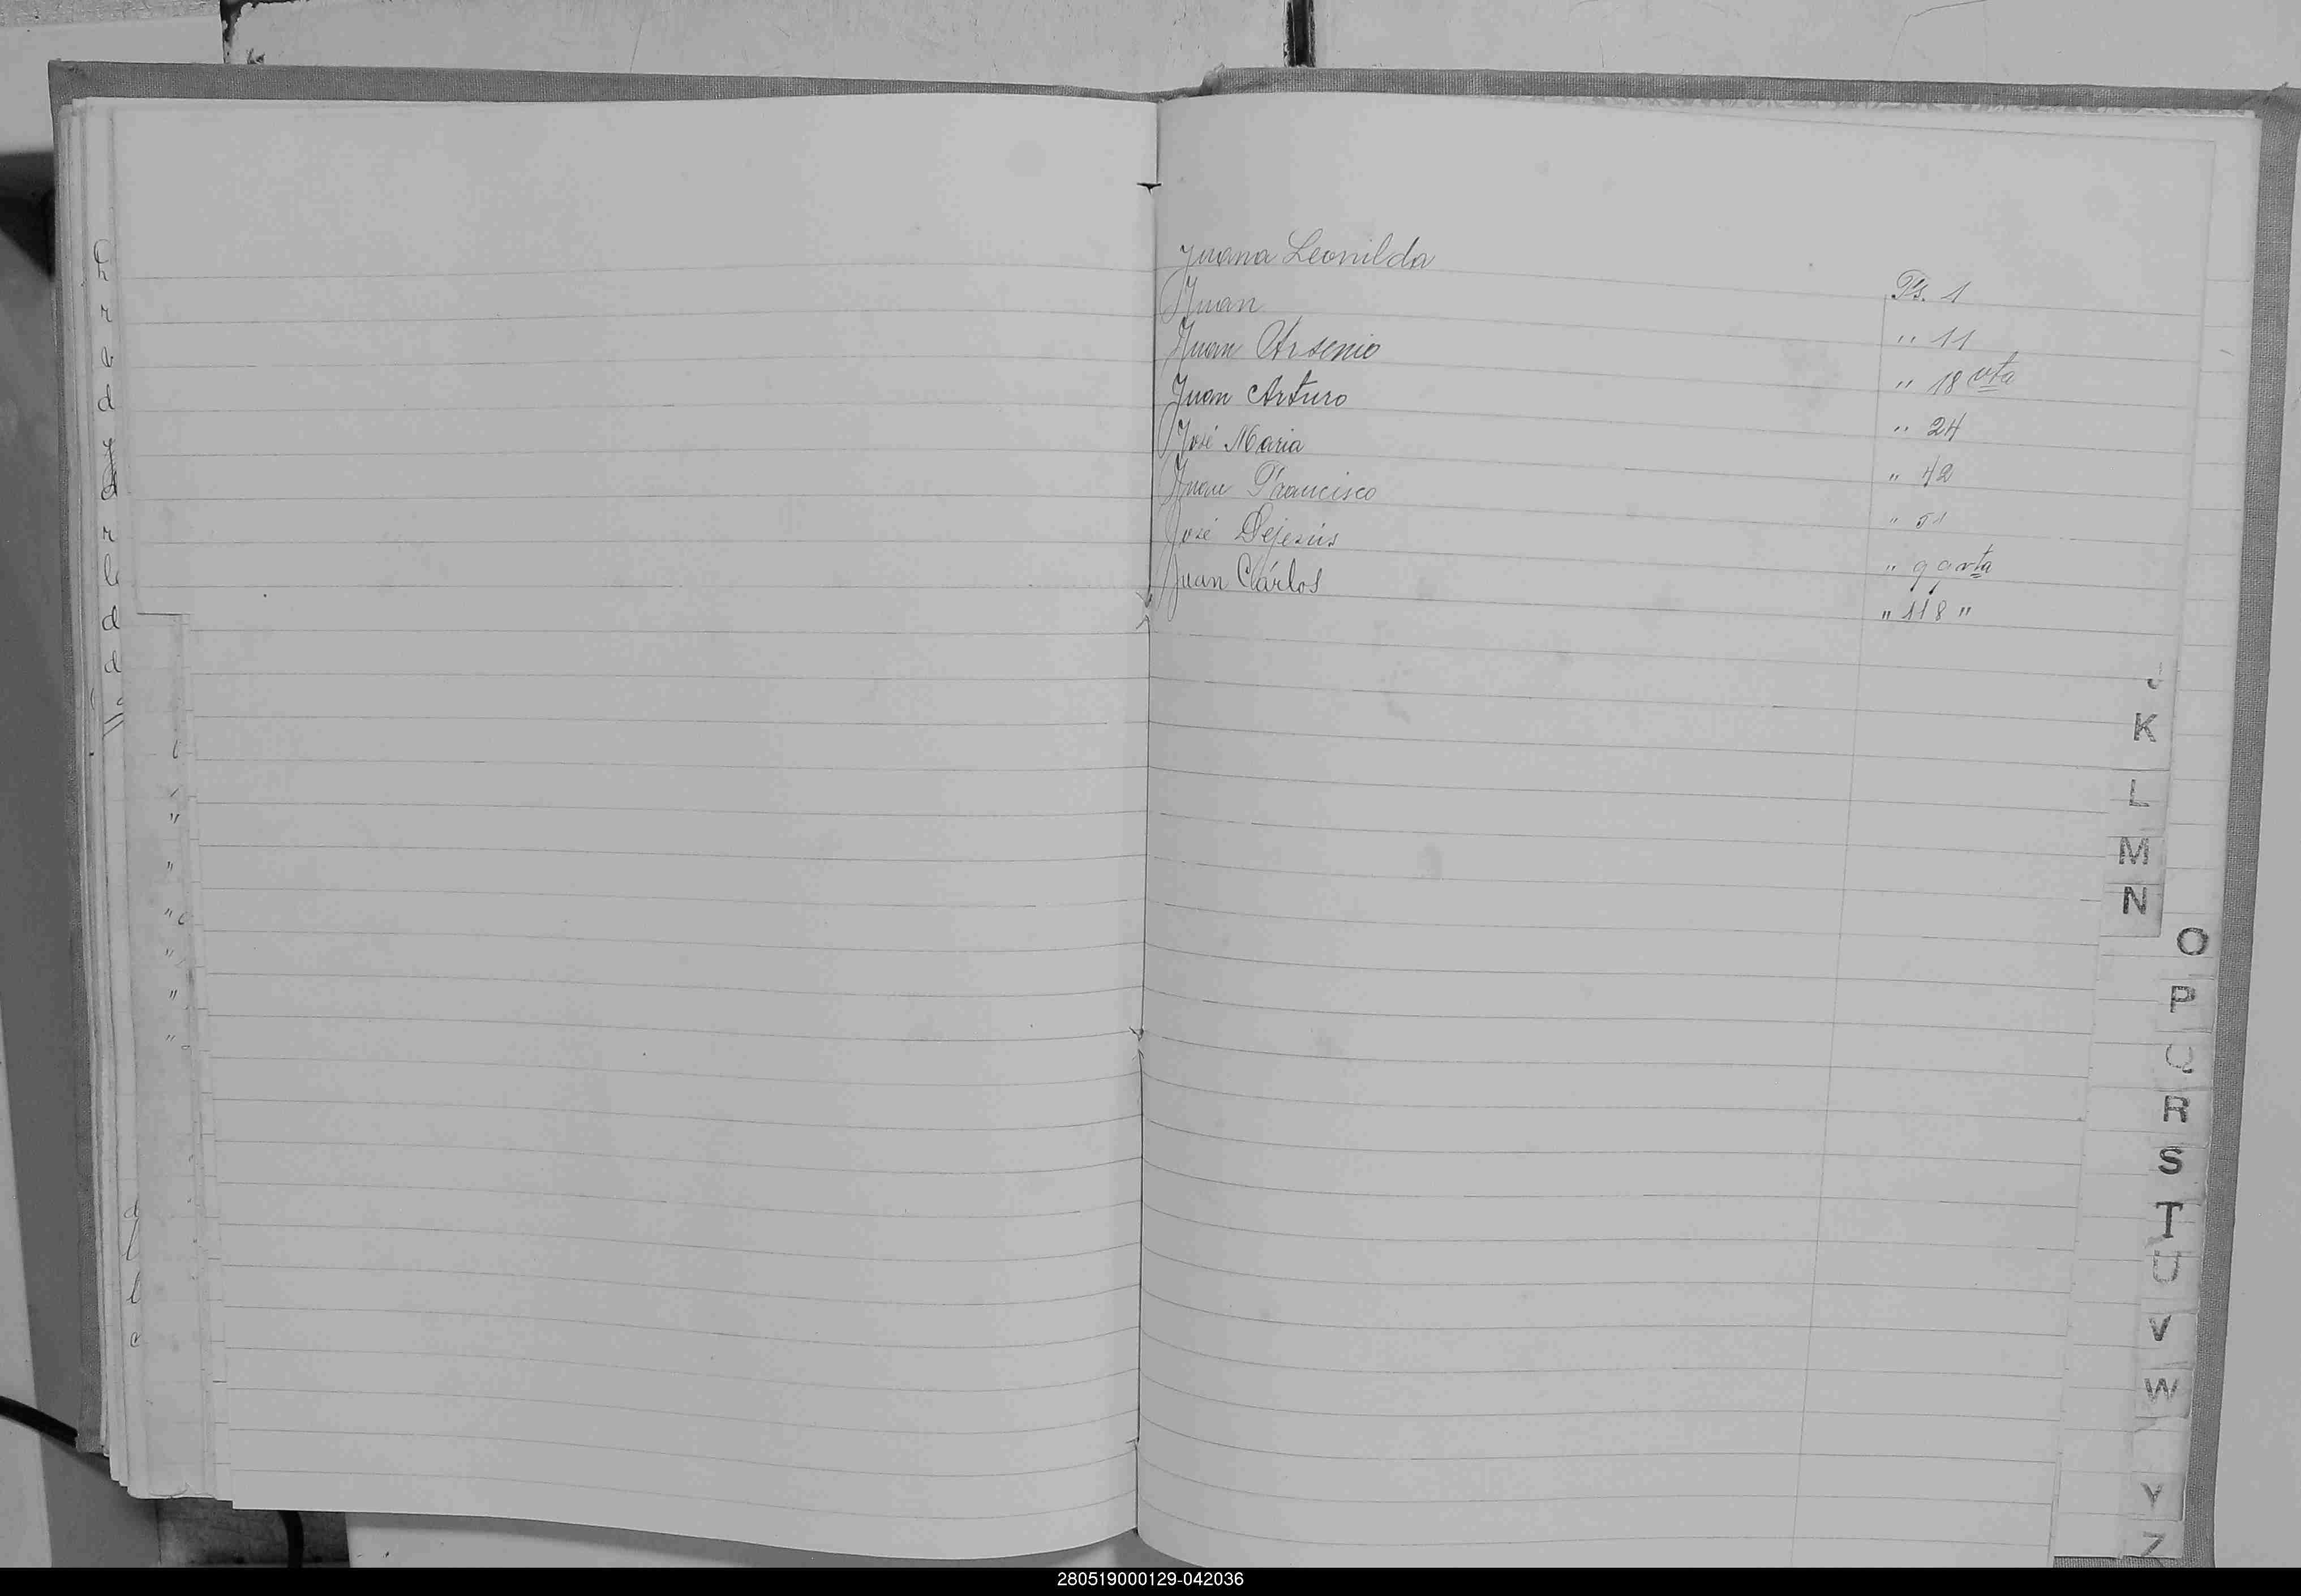 Juana Leonilda Fs. 1
Juan " 11
Juan Arsenio " 18 vta
Juan Arturo " 24
José Maria " 42
Juan Francisco " 51
José Dejesús " 99 vta
Juan Cárlos " 118 "
J
K
L
M
N
O
P
Q
R
S
T
U
V
W
Y
Z
280519000129-042036